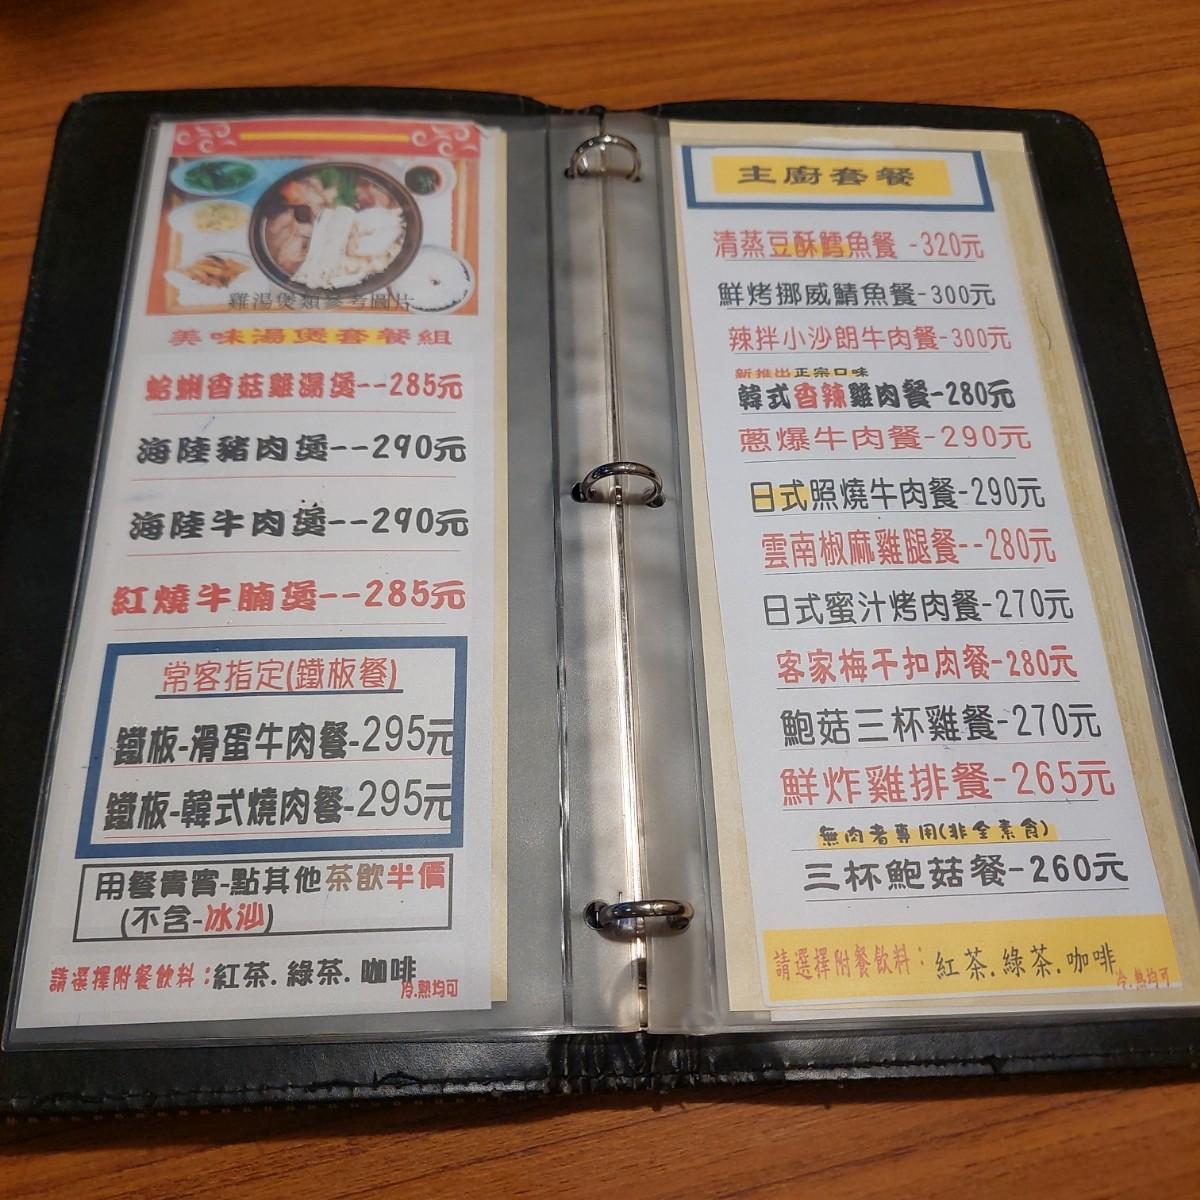 雞湯煲類參考圖片
美味湯煲套餐組
蛤蜊香菇雞湯煲--285元
海陸豬肉煲--290元
海陸牛肉煲--290元
紅燒牛腩煲--285元
常客指定(鐵板餐)
鐵板-滑蛋牛肉餐-295元
鐵板-韓式燒肉餐-295元
用餐貴賓-點其他茶飲半價
(不含-冰沙)
請選擇附餐飲料:紅茶.綠茶.咖啡
冷.熱均可
主廚套餐
清蒸豆酥鱈魚餐 -320元
鮮烤挪威鯖魚餐-300元
辣拌小沙朗牛肉餐-300元
新推出正宗口味
韓式香辣雞肉餐-280元
蔥爆牛肉餐-290元
日式照燒牛肉餐-290元
雲南椒麻雞腿餐--280元
日式蜜汁烤肉餐-270元
客家梅干扣肉餐-280元
鮑菇三杯雞餐-270元
鮮炸雞排餐-265元
無肉者專用(非全素食)
三杯鮑菇餐-260元
請選擇附餐飲料:紅茶.綠茶.咖啡
冷.熱均可